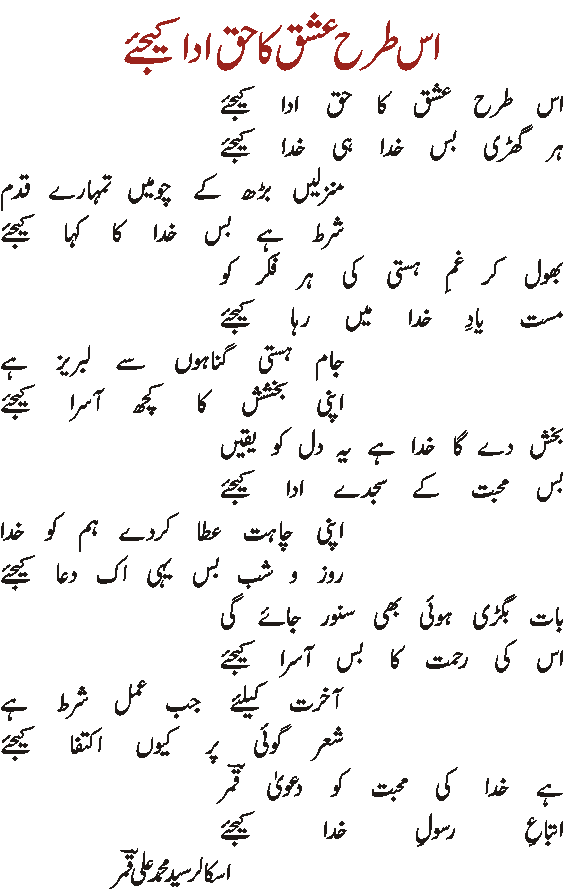 اس طرح عشق کا حق ادا کیجئے
اس طرح عشق کا حق ادا کیجئے
ہر گھڑی بس خدا ہی خدا کیجئے
منزلیں بڑھ کے چومیں تمہارے قدم
شرط ہے بس خدا کا کہا کیجئے
بھول کر غمِ ہستی کی ہر فکر کو
مست یادِ خدا میں رہا کیجئے
جام ہستی گناہوں سے لبریز ہے
اپنی بخشش کا کچھ آسرا کیجئے
بخش دے گا خدا ہے یہ دل کو یقیں
بس محبت کے سجدے ادا کیجئے
اپنی چاہت عطا کردے ہم کو خدا
روز و شب بس یہی اک دعا کیجئے
بات بگڑی ہوئی بھی سنور جائے گی
اس کی رحمت کا بس آسرا کیجئے
آخرت کیلئے جب عمل شرط ہے
شعر گوئی پر کیوں اکتفا کیجئے
ہے خدا کی محبت کو دعویٰ قمرؔ
اتباعِ رسولِ خدا کیجئے
اسکالر سید محمد علی قمرؔ